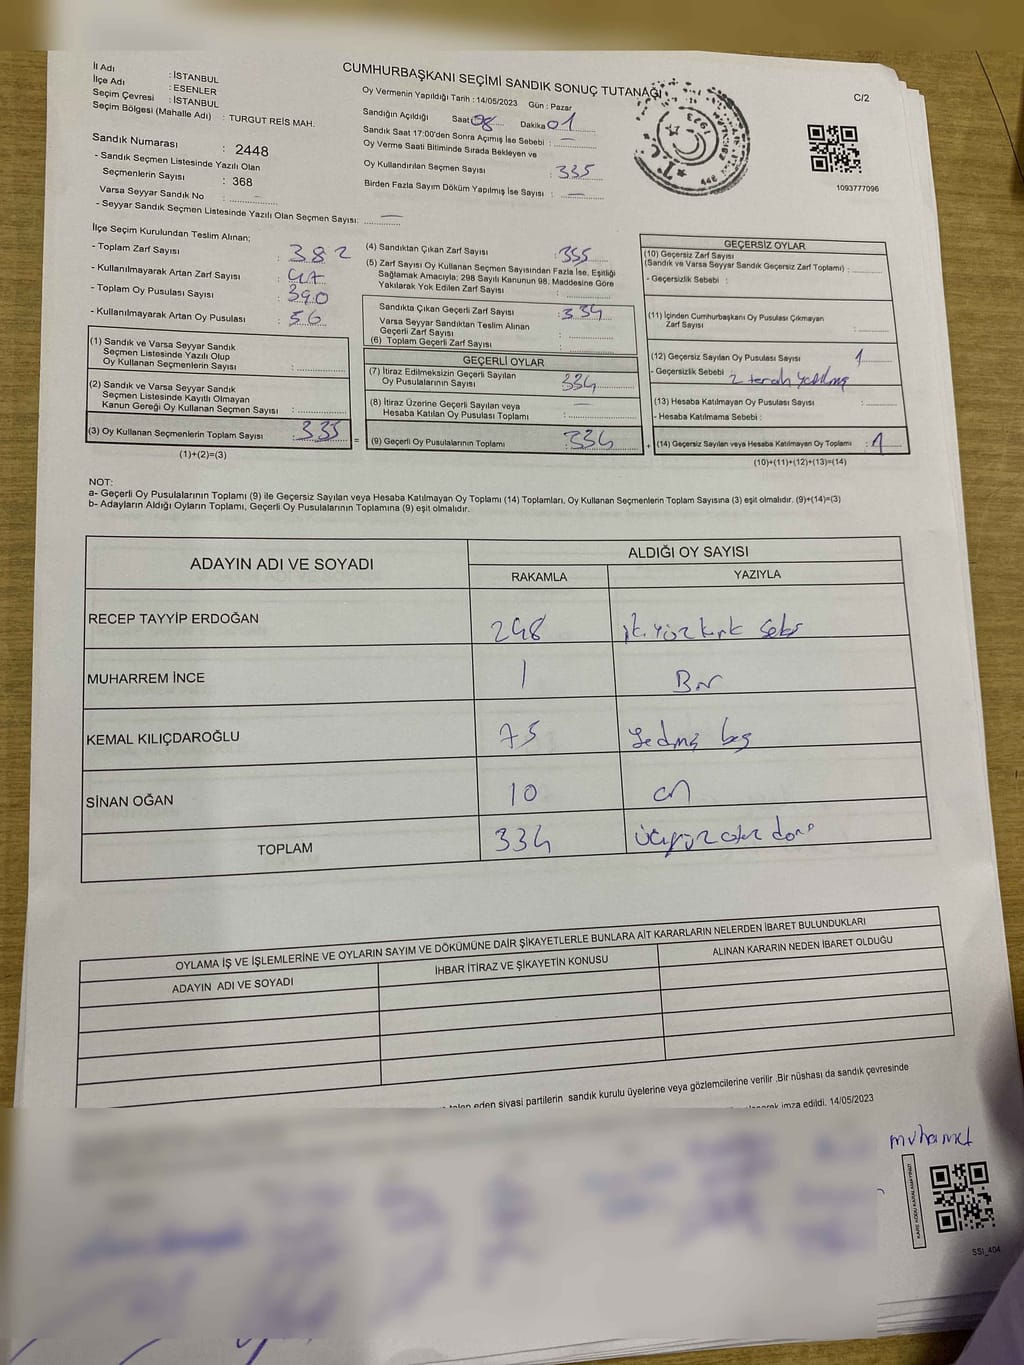 CUMHURBAŞKANI SEÇİMİ SANDIK SONUÇ TUTANAĞI
C/2
İl Adı : İSTANBUL
İlçe Adı : ESENLER
Seçim Çevresi : İSTANBUL
Seçim Bölgesi (Mahalle Adı) : TURGUT REİS MAH.
Sandık Numarası : 2448
- Sandık Seçmen Listesinde Yazılı Olan
Seçmenlerin Sayısı : 368
Varsa Seyyar Sandık No :
- Seyyar Sandık Seçmen Listesinde Yazılı Olan Seçmen Sayısı: —
Oy Vermenin Yapıldığı Tarih : 14/05/2023 Gün : Pazar
Sandığın Açıldığı Saat 08 Dakika 01
Sandık Saat 17:00'den Sonra Açımış İse Sebebi : —
Oy Verme Saati Bitiminde Sırada Bekleyen ve
Oy Kullandırılan Seçmen Sayısı : 335
Birden Fazla Sayım Döküm Yapılmış İse Sayısı : —
T.C.
1923
1093777096
İlçe Seçim Kurulundan Teslim Alınan;
- Toplam Zarf Sayısı : 382
- Kullanılmayarak Artan Zarf Sayısı : 47
- Toplam Oy Pusulası Sayısı : 390
- Kullanılmayarak Artan Oy Pusulası : 56
(1) Sandık ve Varsa Seyyar Sandık
Seçmen Listesinde Yazılı Olup
Oy Kullanan Seçmenlerin Sayısı :
(2) Sandık ve Varsa Seyyar Sandık
Seçmen Listesinde Kayıtlı Olmayan
Kanun Gereği Oy Kullanan Seçmen Sayısı :
(3) Oy Kullanan Seçmenlerin Toplam Sayısı : 335
(1)+(2)=(3)
(4) Sandıktan Çıkan Zarf Sayısı : 335
(5) Zarf Sayısı Oy Kullanan Seçmen Sayısından Fazla İse, Eşitliği
Sağlamak Amacıyla; 298 Sayılı Kanunun 98. Maddesine Göre
Yakılarak Yok Edilen Zarf Sayısı :
Sandıkta Çıkan Geçerli Zarf Sayısı : 334
Varsa Seyyar Sandıktan Teslim Alınan
Geçerli Zarf Sayısı :
(6) Toplam Geçerli Zarf Sayısı :
GEÇERLİ OYLAR
(7) İtiraz Edilmeksizin Geçerli Sayılan
Oy Pusulalarının Sayısı : 334
(8) İtiraz Üzerine Geçerli Sayılan veya
Hesaba Katılan Oy Pusulası Toplamı : —
= (9) Geçerli Oy Pusulalarının Toplamı : 334
GEÇERSİZ OYLAR
(10) Geçersiz Zarf Sayısı
(Sandık ve Varsa Seyyar Sandık Geçersiz Zarf Toplamı) :
- Geçersizlik Sebebi :
(11) İçinden Cumhurbaşkanı Oy Pusulası Çıkmayan
Zarf Sayısı :
(12) Geçersiz Sayılan Oy Pusulası Sayısı : 1
- Geçersizlik Sebebi : 2 tercih
(13) Hesaba Katılmayan Oy Pusulası Sayısı :
- Hesaba Katılmama Sebebi :
+ (14) Geçersiz Sayılan veya Hesaba Katılmayan Oy Toplamı : 1
(10)+(11)+(12)+(13)=(14)
NOT:
a- Geçerli Oy Pusulalarının Toplamı (9) ile Geçersiz Sayılan veya Hesaba Katılmayan Oy Toplamı (14) Toplamları, Oy Kullanan Seçmenlerin Toplam Sayısına (3) eşit olmalıdır. (9)+(14)=(3)
b- Adayların Aldığı Oyların Toplamı, Geçerli Oy Pusulalarının Toplamına (9) eşit olmalıdır.
ADAYIN ADI VE SOYADI
ALDIĞI OY SAYISI
RAKAMLA YAZIYLA
RECEP TAYYİP ERDOĞAN 248 ikiyüzkırk sekiz
MUHARREM İNCE 1 Bir
KEMAL KILIÇDAROĞLU 75 Yedmiş beş
SİNAN OĞAN 10 on
TOPLAM 334 üçyüz otuz dört
OYLAMA İŞ VE İŞLEMLERİNE VE OYLARIN SAYIM VE DÖKÜMÜNE DAİR ŞİKAYETLERLE BUNLARA AİT KARARLARIN NELERDEN İBARET BULUNDUKLARI
ADAYIN ADI VE SOYADI
İHBAR İTİRAZ VE ŞİKAYETİN KONUSU
ALINAN KARARIN NEDEN İBARET OLDUĞU
eden siyasi partilerin sandık kurulu üyelerine veya gözlemcilerine verilir .Bir nüshası da sandık çevresinde
imza edildi. 14/05/2023
muhamet
SSI_404